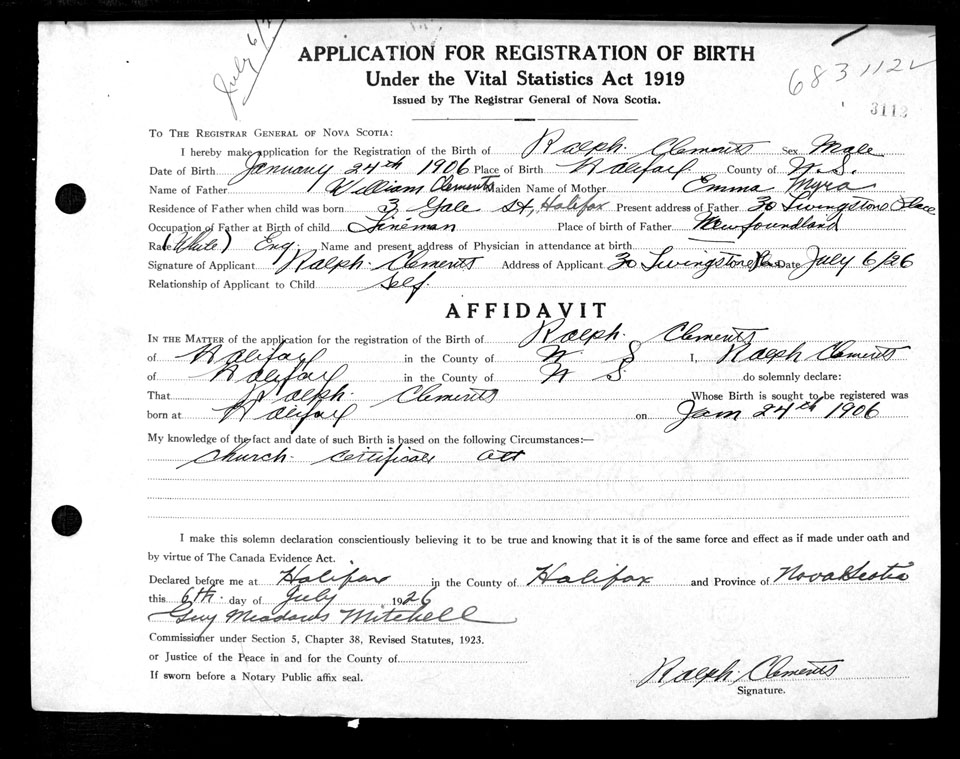 July 6/
683 1122
3113
APPLICATION FOR REGISTRATION OF BIRTH
Under the Vital Statistics Act 1919
Issued by The Registrar General of Nova Scotia.
TO THE REGISTRAR GENERAL OF NOVA SCOTIA:
I hereby make application for the Registration of the Birth of Ralph. Clements Sex Male
Date of Birth January 24th 1906 Place of Birth Halifax County of N.S.
Name of Father William Clements Maiden Name of Mother Emma Myra
Residence of Father when child was born 3 Gale St, Halifax Present address of Father 30 Livingstone Place
Occupation of Father at Birth of child Lineman Place of birth of Father Newfoundland
Race (White) Eng. Name and present address of Physician in attendance at birth
Signature of Applicant Ralph. Clements Address of Applicant 30 Livingstone Place Date July 6/26
Relationship of Applicant to Child Self.
AFFIDAVIT
IN THE MATTER of the application for the registration of the Birth of Ralph. Clements
of Halifax in the County of N S I, Ralph Clements
of Halifax in the County of N S. do solemnly declare:
That Ralph. Clements Whose Birth is sought to be registered was
born at Halifax on Jan 24th 1906
My knowledge of the fact and date of such Birth is based on the following Circumstances:—
Church. Certificate Att
I make this solemn declaration conscientiously believing it to be true and knowing that it is of the same force and effect as if made under oath and
by virtue of The Canada Evidence Act.
Declared before me at Halifax in the County of Halifax and Province of Nova Scotia
this 6th. day of July 1926
Guy Meadows Mitchell
Commissioner under Section 5, Chapter 38, Revised Statutes, 1923.
or Justice of the Peace in and for the County of
If sworn before a Notary Public affix seal.
Ralph. Clements
Signature.